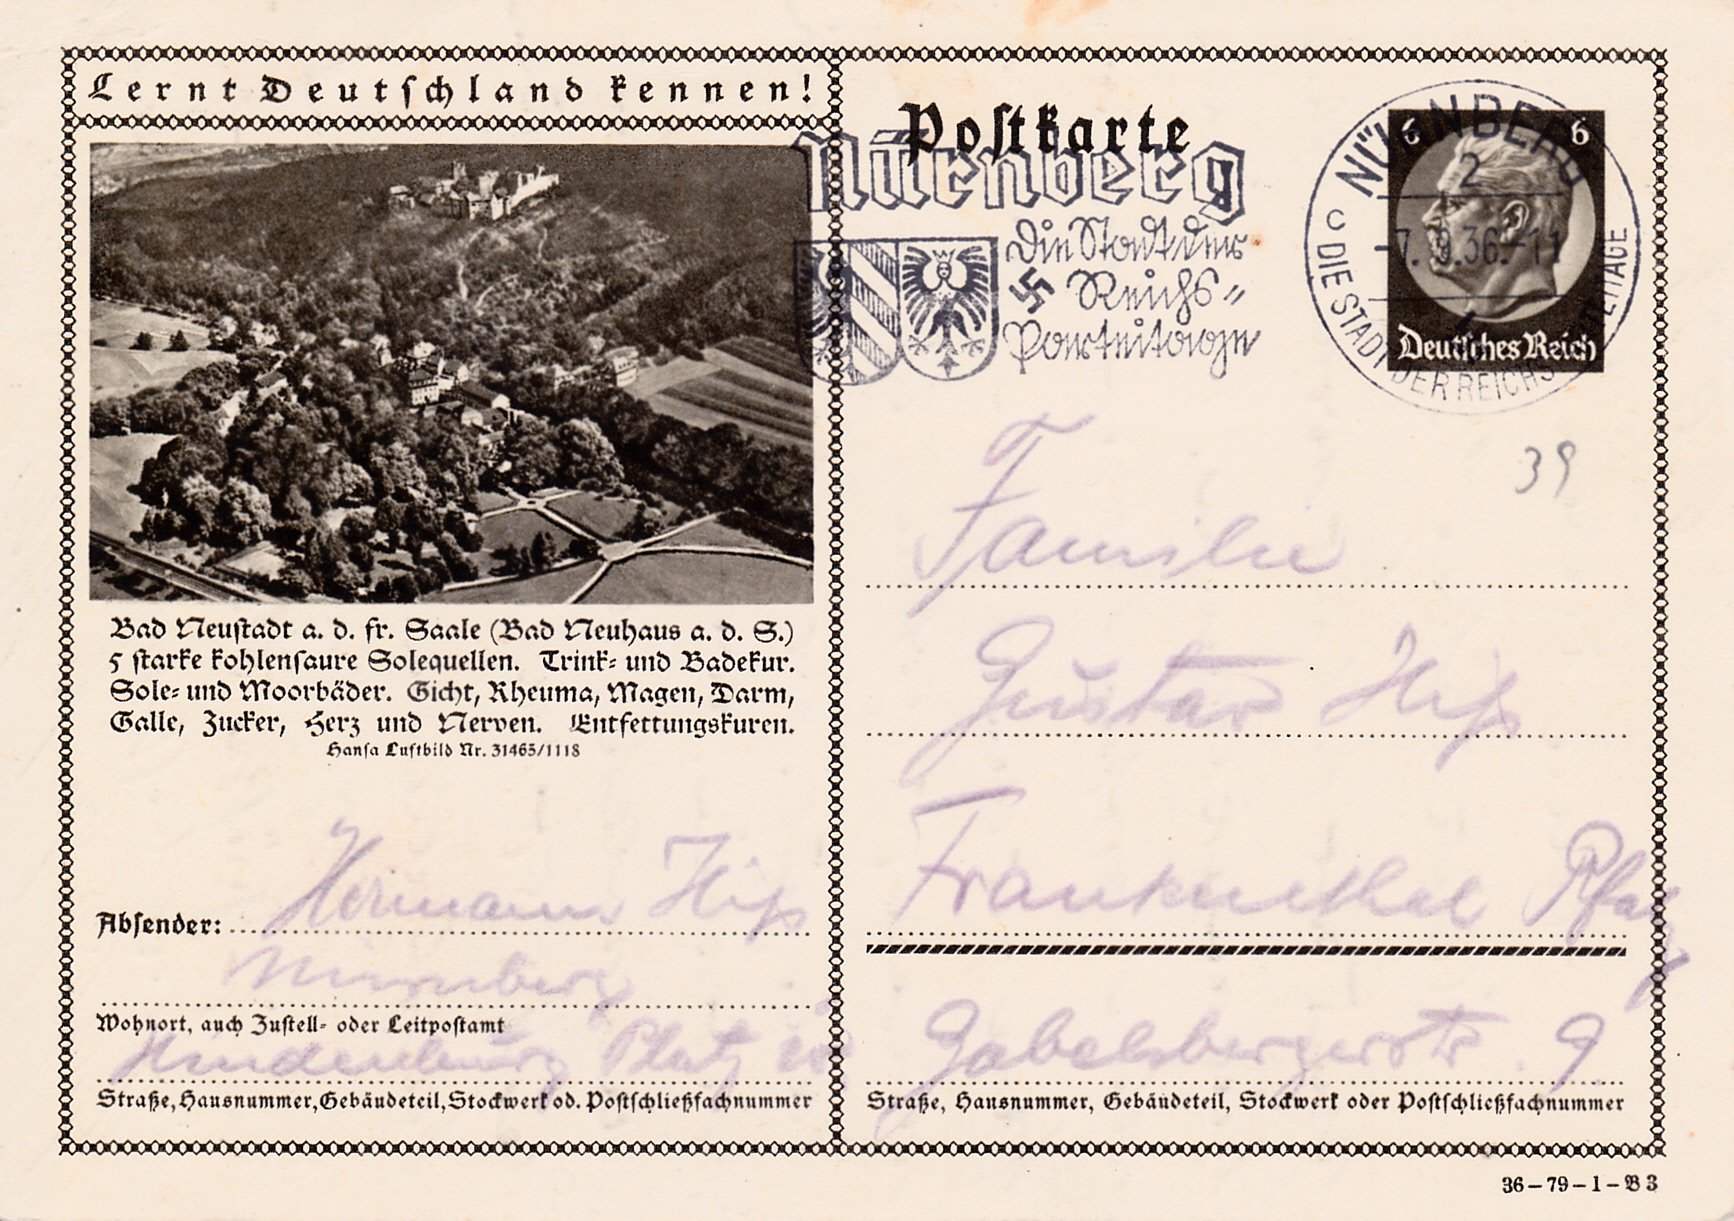 Lernt Deutschland kennen!
Bad Neustadt a. d. fr. Saale (Bad Neuhaus a. d. S.)
5 starke kohlensaure Solequellen. Trink- und Badekur.
Sole- und Moorbäder. Gicht, Rheuma, Magen, Darm,
Galle, Zucker, Herz und Nerven. Entfettungskuren.
Hansa Luftbild Nr. 31465/1118
Absender: Hermann
Nürnberg
Wohnort, auch Zustell- oder Leitpostamt
Hindenburg Platz
Straße, Hausnummer, Gebäudeteil, Stockwerk od. Postschließfachnummer
Postkarte
Nürnberg
Die Stadt der
Reichs-
Parteitage
NÜRNBERG
2
C
-7.9.36.-11
DIE STADT DER REICHSPARTEITAGE
6 6
Deutsches Reich
39
Familie
Gustav
Frankenthal Pfalz
Gabelsbergerstr. 9
Straße, Hausnummer, Gebäudeteil, Stockwerk oder Postschließfachnummer
36-79-1-B3